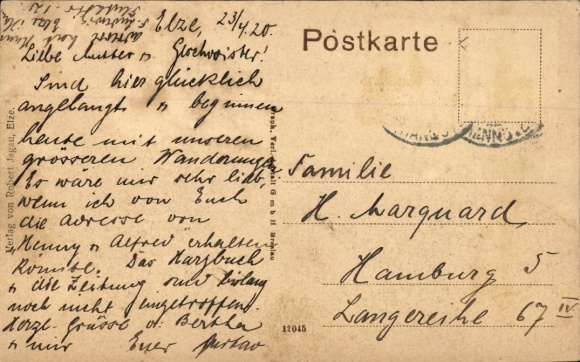 Elze, 23/4.20.
Liebe Mutter u. Geschwister!
Sind hier glücklich
angelangt u beginnen
heute mit unseren
grösseren Wanderungen
Es wäre mir sehr lieb,
wenn ich von Euch
die Adresse von
Henny u Alfred erhalten
könnte. Das Harzbuch
u die Zeitung sind bislang
noch nicht eingetroffen.
Herzl. Grüsse a. Bertha
u mir Euer Gustav
Verlag von Robert Jagau, Elze.
Postkarte
Familie
H. Marquard
Hamburg 5
Langereihe 67 IV
12045